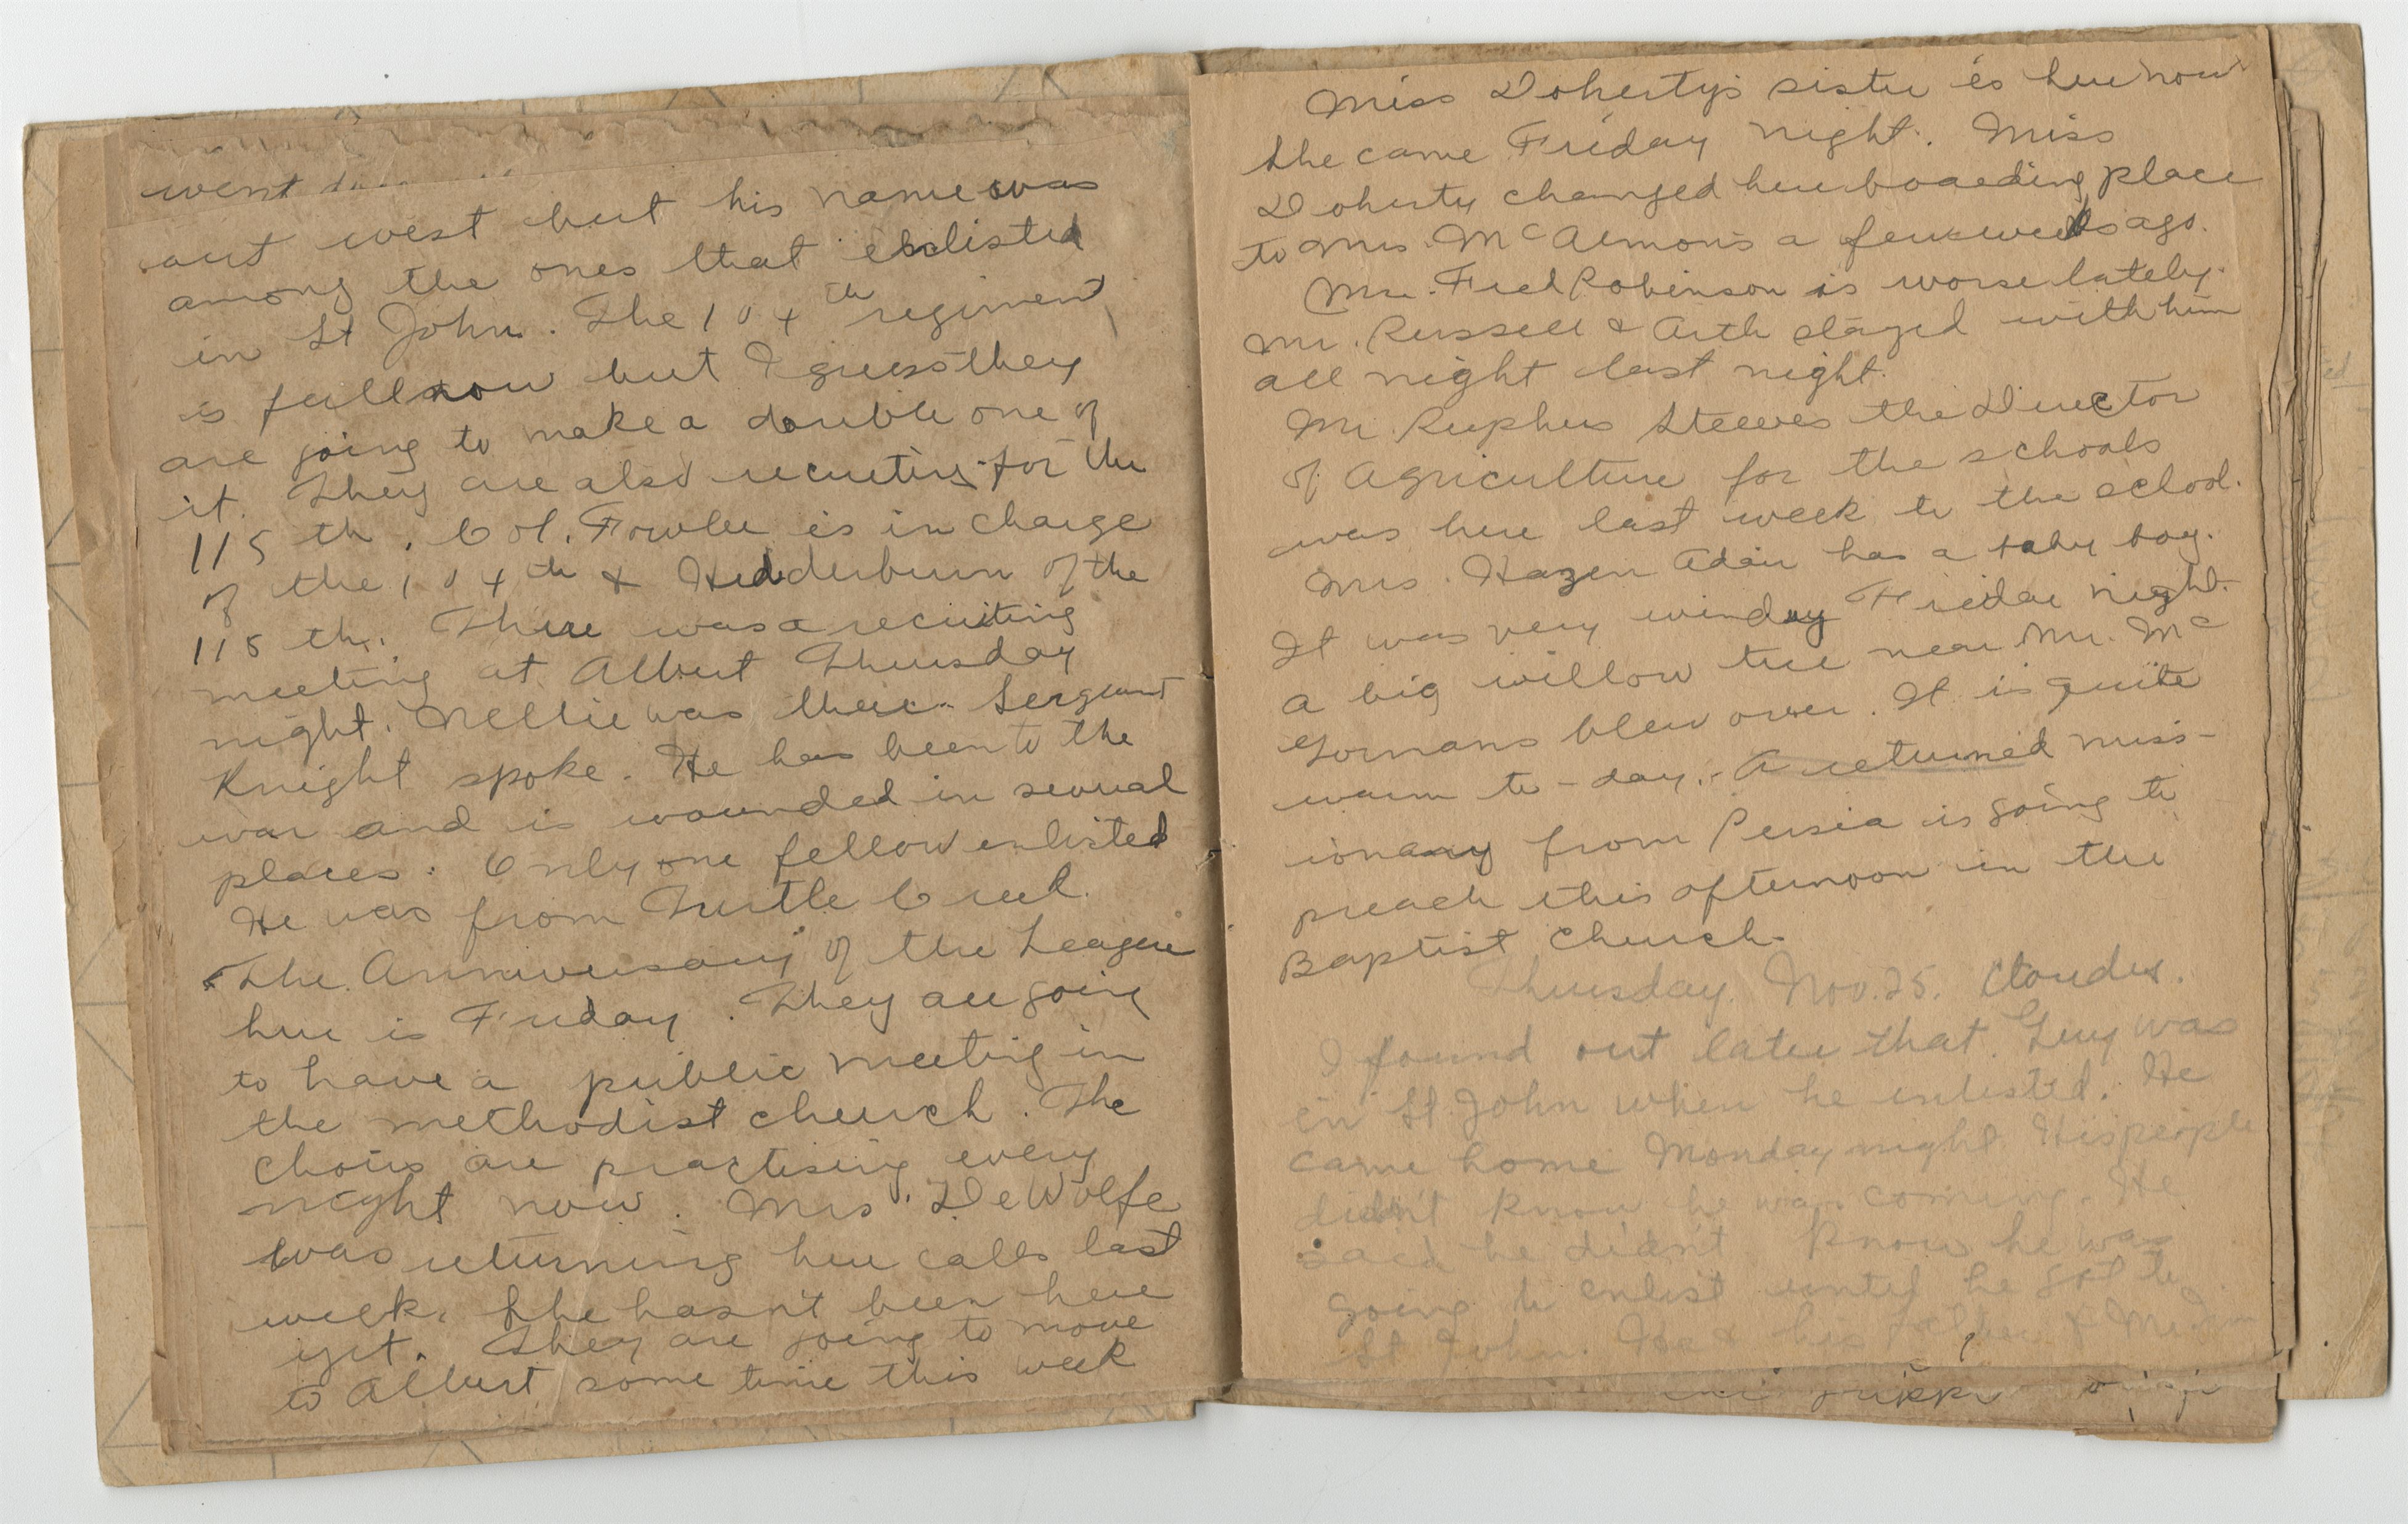 went
out west but his name was
among the ones that enlisted
in St John. The 104th regiment
is full now but I guess they
are going to make a double one of
it. They are also recruiting for the
115 th. Col. Fowler is in charge
of the 104th & Hedderburn of the
115 th. There was a recruiting
meeting at Albert Thursday
night. Nellie was there. Sergeant
Knight spoke. He has been to the
war and is wounded in several
places. Only one fellow enlisted
He was from Turtle Creek.
The Anniversary of the League
here is Friday. They are going
to have a public meeting in
the methodist church. The
choirs are practising every
night now. Mrs. DeWolfe
was returning her calls last
week. She hasn't been here
yet. They are going to move
to Albert some time this week
Miss Doherty's sister is here now
She came Friday night. Miss
Doherty changed her boarding place
to Mrs. McAlmon's a few weeks ago.
Mr. Fred Robinson is worse lately.
Mr. Russell & Arth stayed with him
all night last night.
Mr. Ruphus Steeves the Director
of Agriculture for the schools
was here last week to the school.
Mrs. Hazen Adair has a baby boy.
It was very windy Fridae night.
a big willow tree near Mr. Mc
Gormans blew over. It is quite
warm to-day. A returned miss-
ionary from Persia is going to
preach this afternoon in the
Baptist Church.
Thursday. Nov. 25. Cloudy.
I found out later that Guy was
in St John when he enlisted. He
came home Monday night. His people
didn't know he was coming. He
said he didn't know he was
going to enlist until he got to
St John. He & his father & Mr